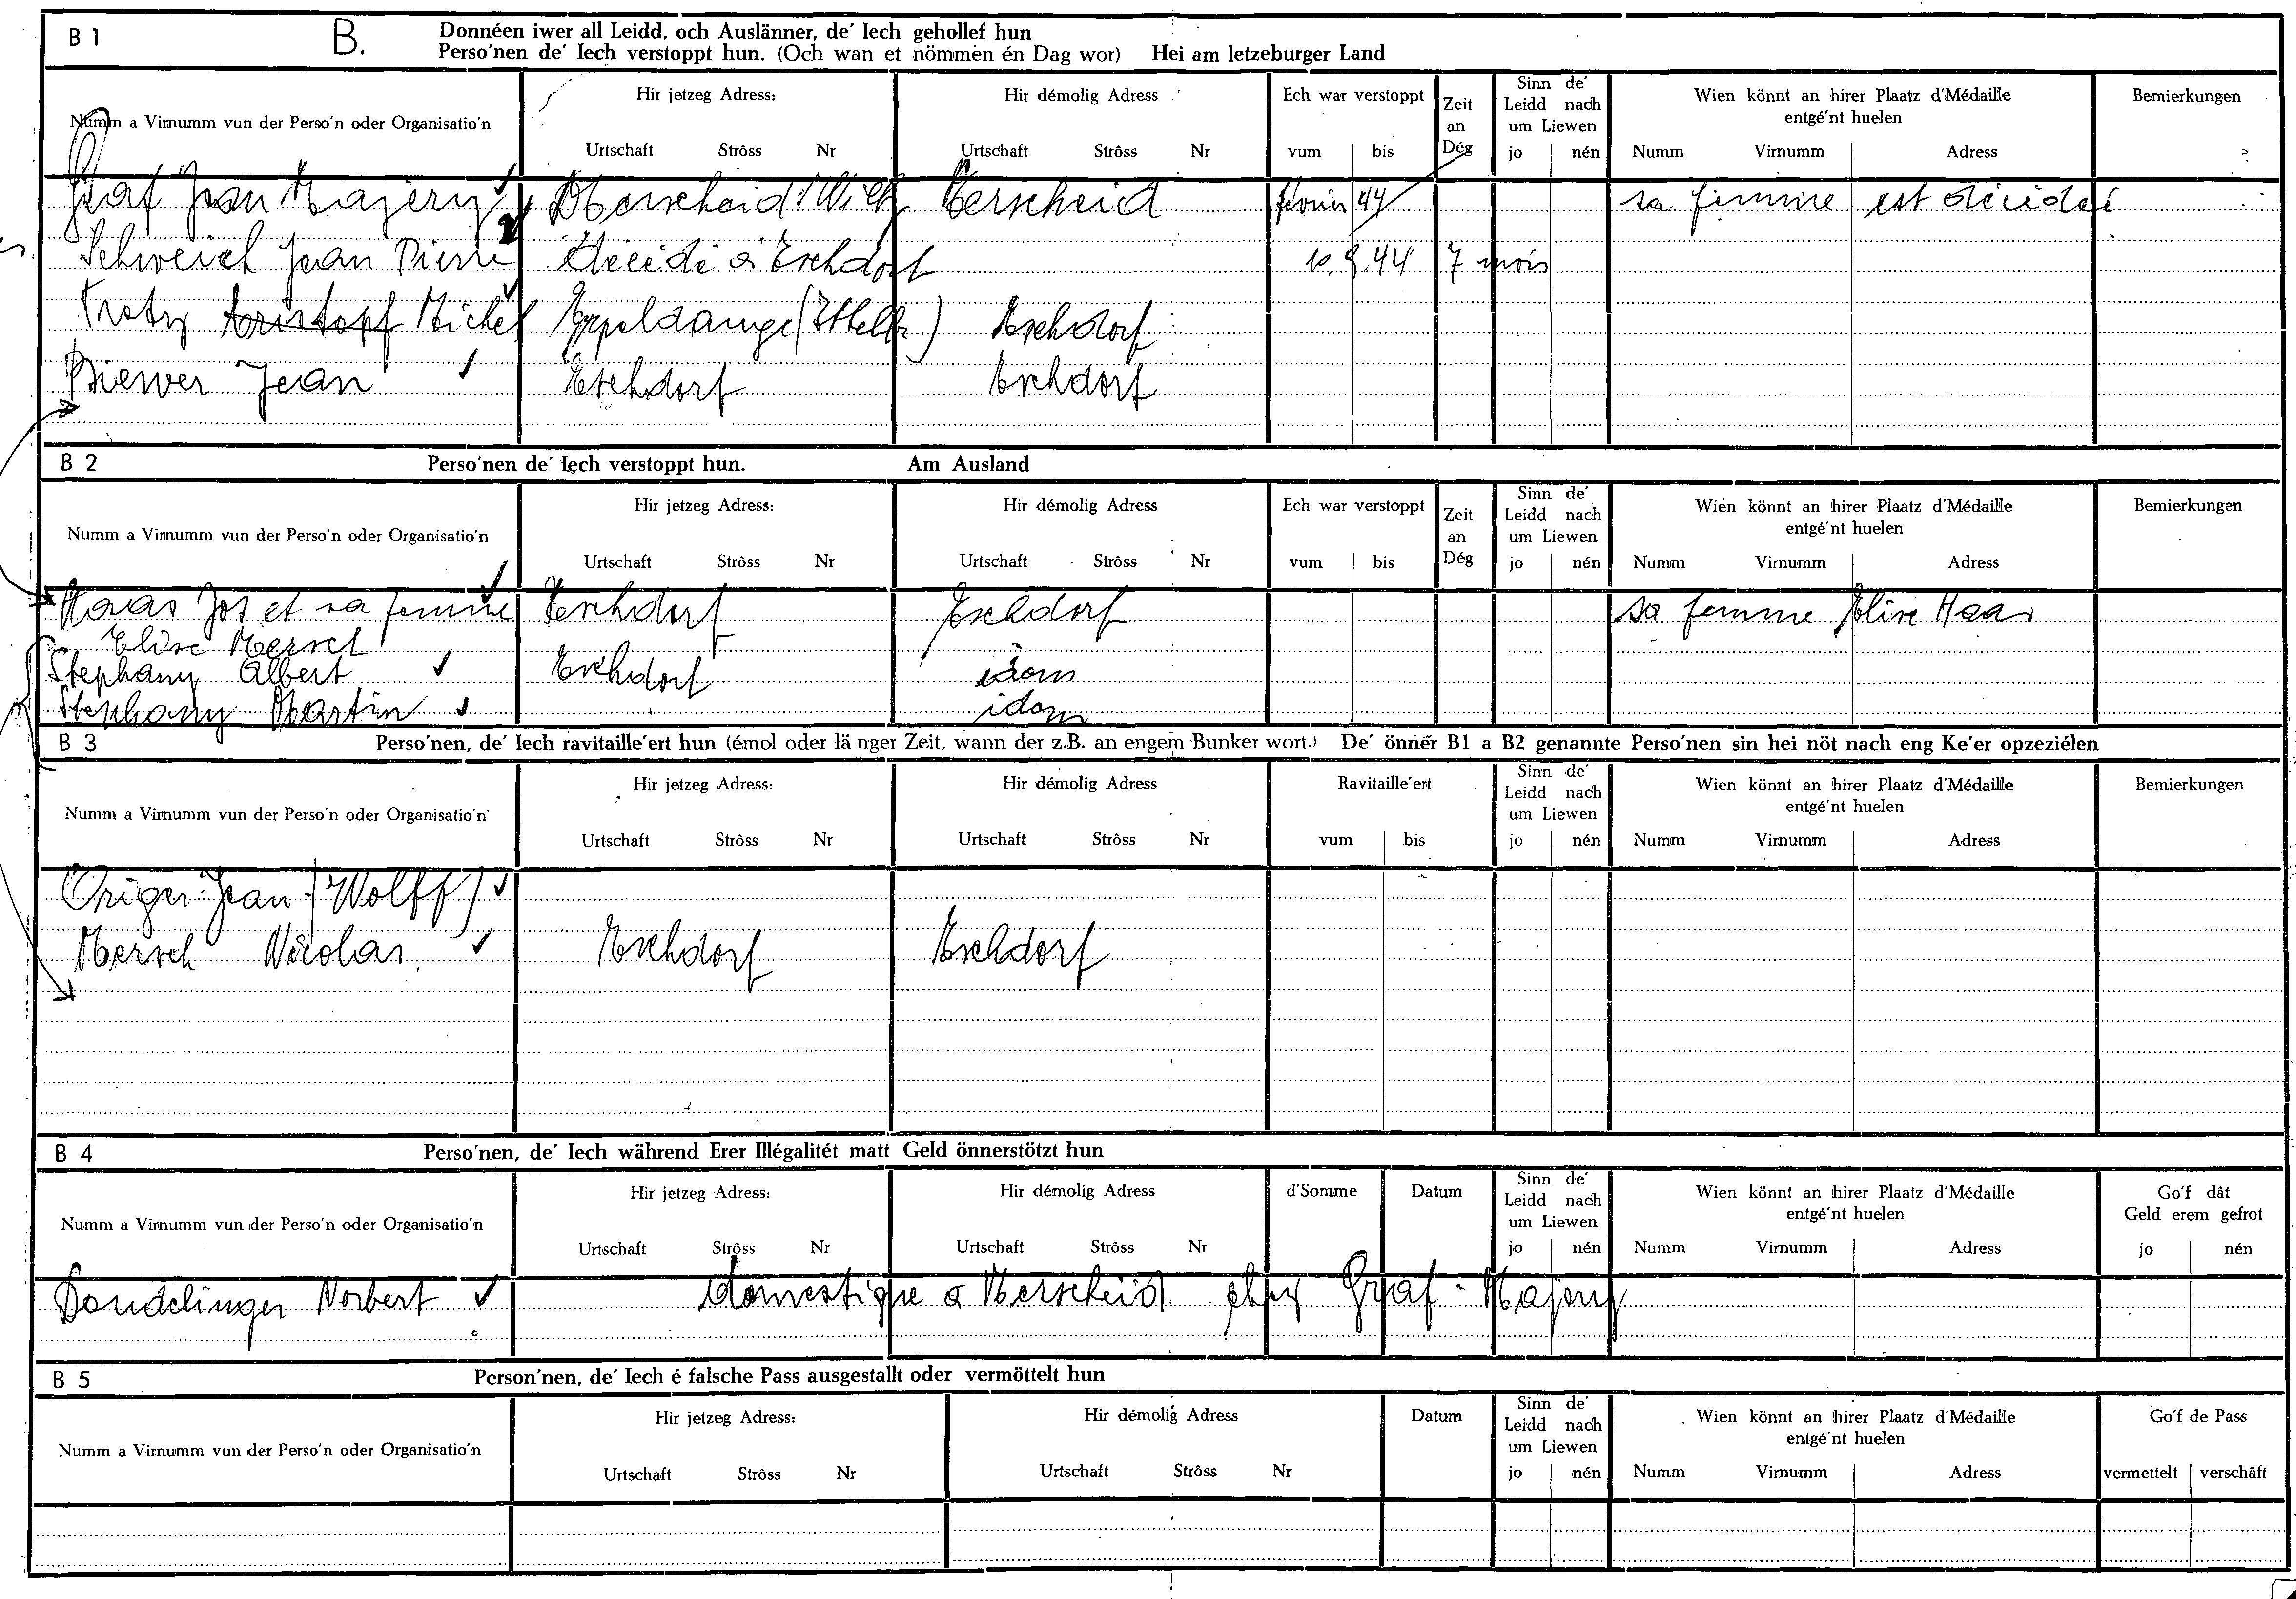 B 1 B. Donnéen iwer all Leidd, och Auslänner, de' Iech gehollef hun
Perso'nen de' Iech verstoppt hun. (Och wan et nömmen én Dag wor) Hei am letzeburger Land
Numm a Virnumm vun der Perso'n oder Organisatio'n
Hir jetzeg Adress:
Urtschaft Strôss Nr
Hir démolig Adress
Urtschaft Strôss Nr
Ech war verstoppt
vum bis
Zeit an Dég
Sinn de' Leidd nach um Liewen
jo nén
Wien könnt an hirer Plaatz d'Médaille entgé'nt huelen
Numm Virnumm Adress
Bemierkungen
Graf Jean Majerus Merscheid/Wiltz Merscheid février 44 sa femme est décidée
Schweich Jean Pierre décédé à Eschdorf 10.9.44 7 mois
Trotz Michel Eppeldauge Eschdorf
Biewer Jean Eschdorf Eschdorf
B 2 Perso'nen de' Iech verstoppt hun. Am Ausland
Numm a Virnumm vun der Perso'n oder Organisatio'n
Hir jetzeg Adress:
Urtschaft Strôss Nr
Hir démolig Adress
Urtschaft Strôss Nr
Ech war verstoppt
vum bis
Zeit an Dég
Sinn de' Leidd nach um Liewen
jo nén
Wien könnt an hirer Plaatz d'Médaille entgé'nt huelen
Numm Virnumm Adress
Bemierkungen
Haas Jos et sa femme Eschdorf Eschdorf sa femme Elise Haas
Elise Mersch
Stephany Albert Eschdorf idem
Stephany Martin idem
B 3 Perso'nen, de' Iech ravitaille'ert hun (émol oder länger Zeit, wann der z.B. an engem Bunker wort.) De' önner B1 a B2 genannte Perso'nen sin hei nöt nach eng Ke'er opzeziélen
Numm a Virnumm vun der Perso'n oder Organisatio'n
Hir jetzeg Adress:
Urtschaft Strôss Nr
Hir démolig Adress
Urtschaft Strôss Nr
Ravitaille'ert
vum bis
Sinn de' Leidd nach um Liewen
jo nén
Wien könnt an hirer Plaatz d'Médaille entgé'nt huelen
Numm Virnumm Adress
Bemierkungen
Origer Jean (Wolff)
Mersch Nicolas Eschdorf Eschdorf
B 4 Perso'nen, de' Iech während Erer Illégalitét matt Geld önnerstötzt hun
Numm a Virnumm vun der Perso'n oder Organisatio'n
Hir jetzeg Adress:
Urtschaft Strôss Nr
Hir démolig Adress
Urtschaft Strôss Nr
d'Somme
Datum
Sinn de' Leidd nach um Liewen
jo nén
Wien könnt an hirer Plaatz d'Médaille entgé'nt huelen
Numm Virnumm Adress
Go'f dât Geld erem gefrot
jo nén
Dondelinger Norbert domestique a Merscheid chez Graf-Majery
B 5 Person'nen, de' Iech é falsche Pass ausgestallt oder vermöttelt hun
Numm a Virnumm vun der Perso'n oder Organisatio'n
Hir jetzeg Adress:
Urtschaft Strôss Nr
Hir démolig Adress
Urtschaft Strôss Nr
Datum
Sinn de' Leidd nach um Liewen
jo nén
Wien könnt an hirer Plaatz d'Médaille entgé'nt huelen
Numm Virnumm Adress
Go'f de Pass
vermettelt verschâft